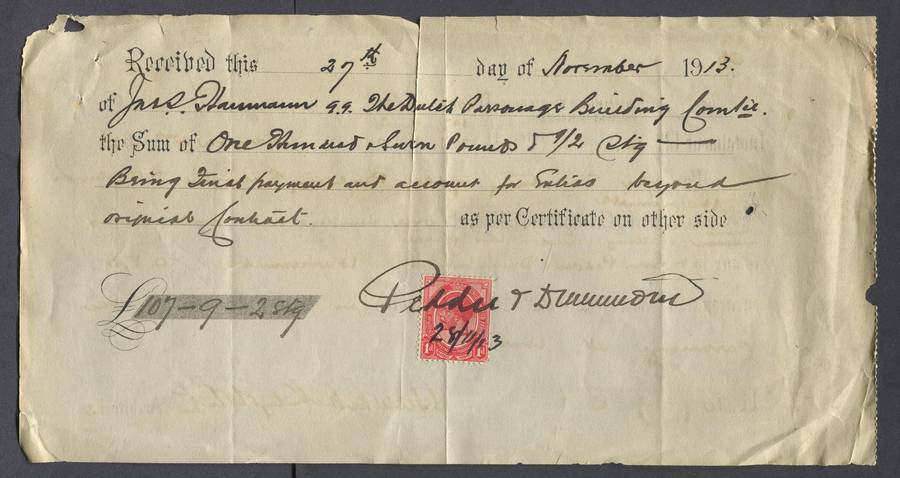 Received this 27th day of November 1913.
of Jas. S. Hanmann q.q. The Dutch Parsonage Building Comtee
the Sum of One Thousand & Seven Pounds & 9/2 Stg
Being Final payment and account for Extras beyond
original Contract. as per Certificate on other side
£107-9-2 stg
& Drummond
28/11/13
1d 1d